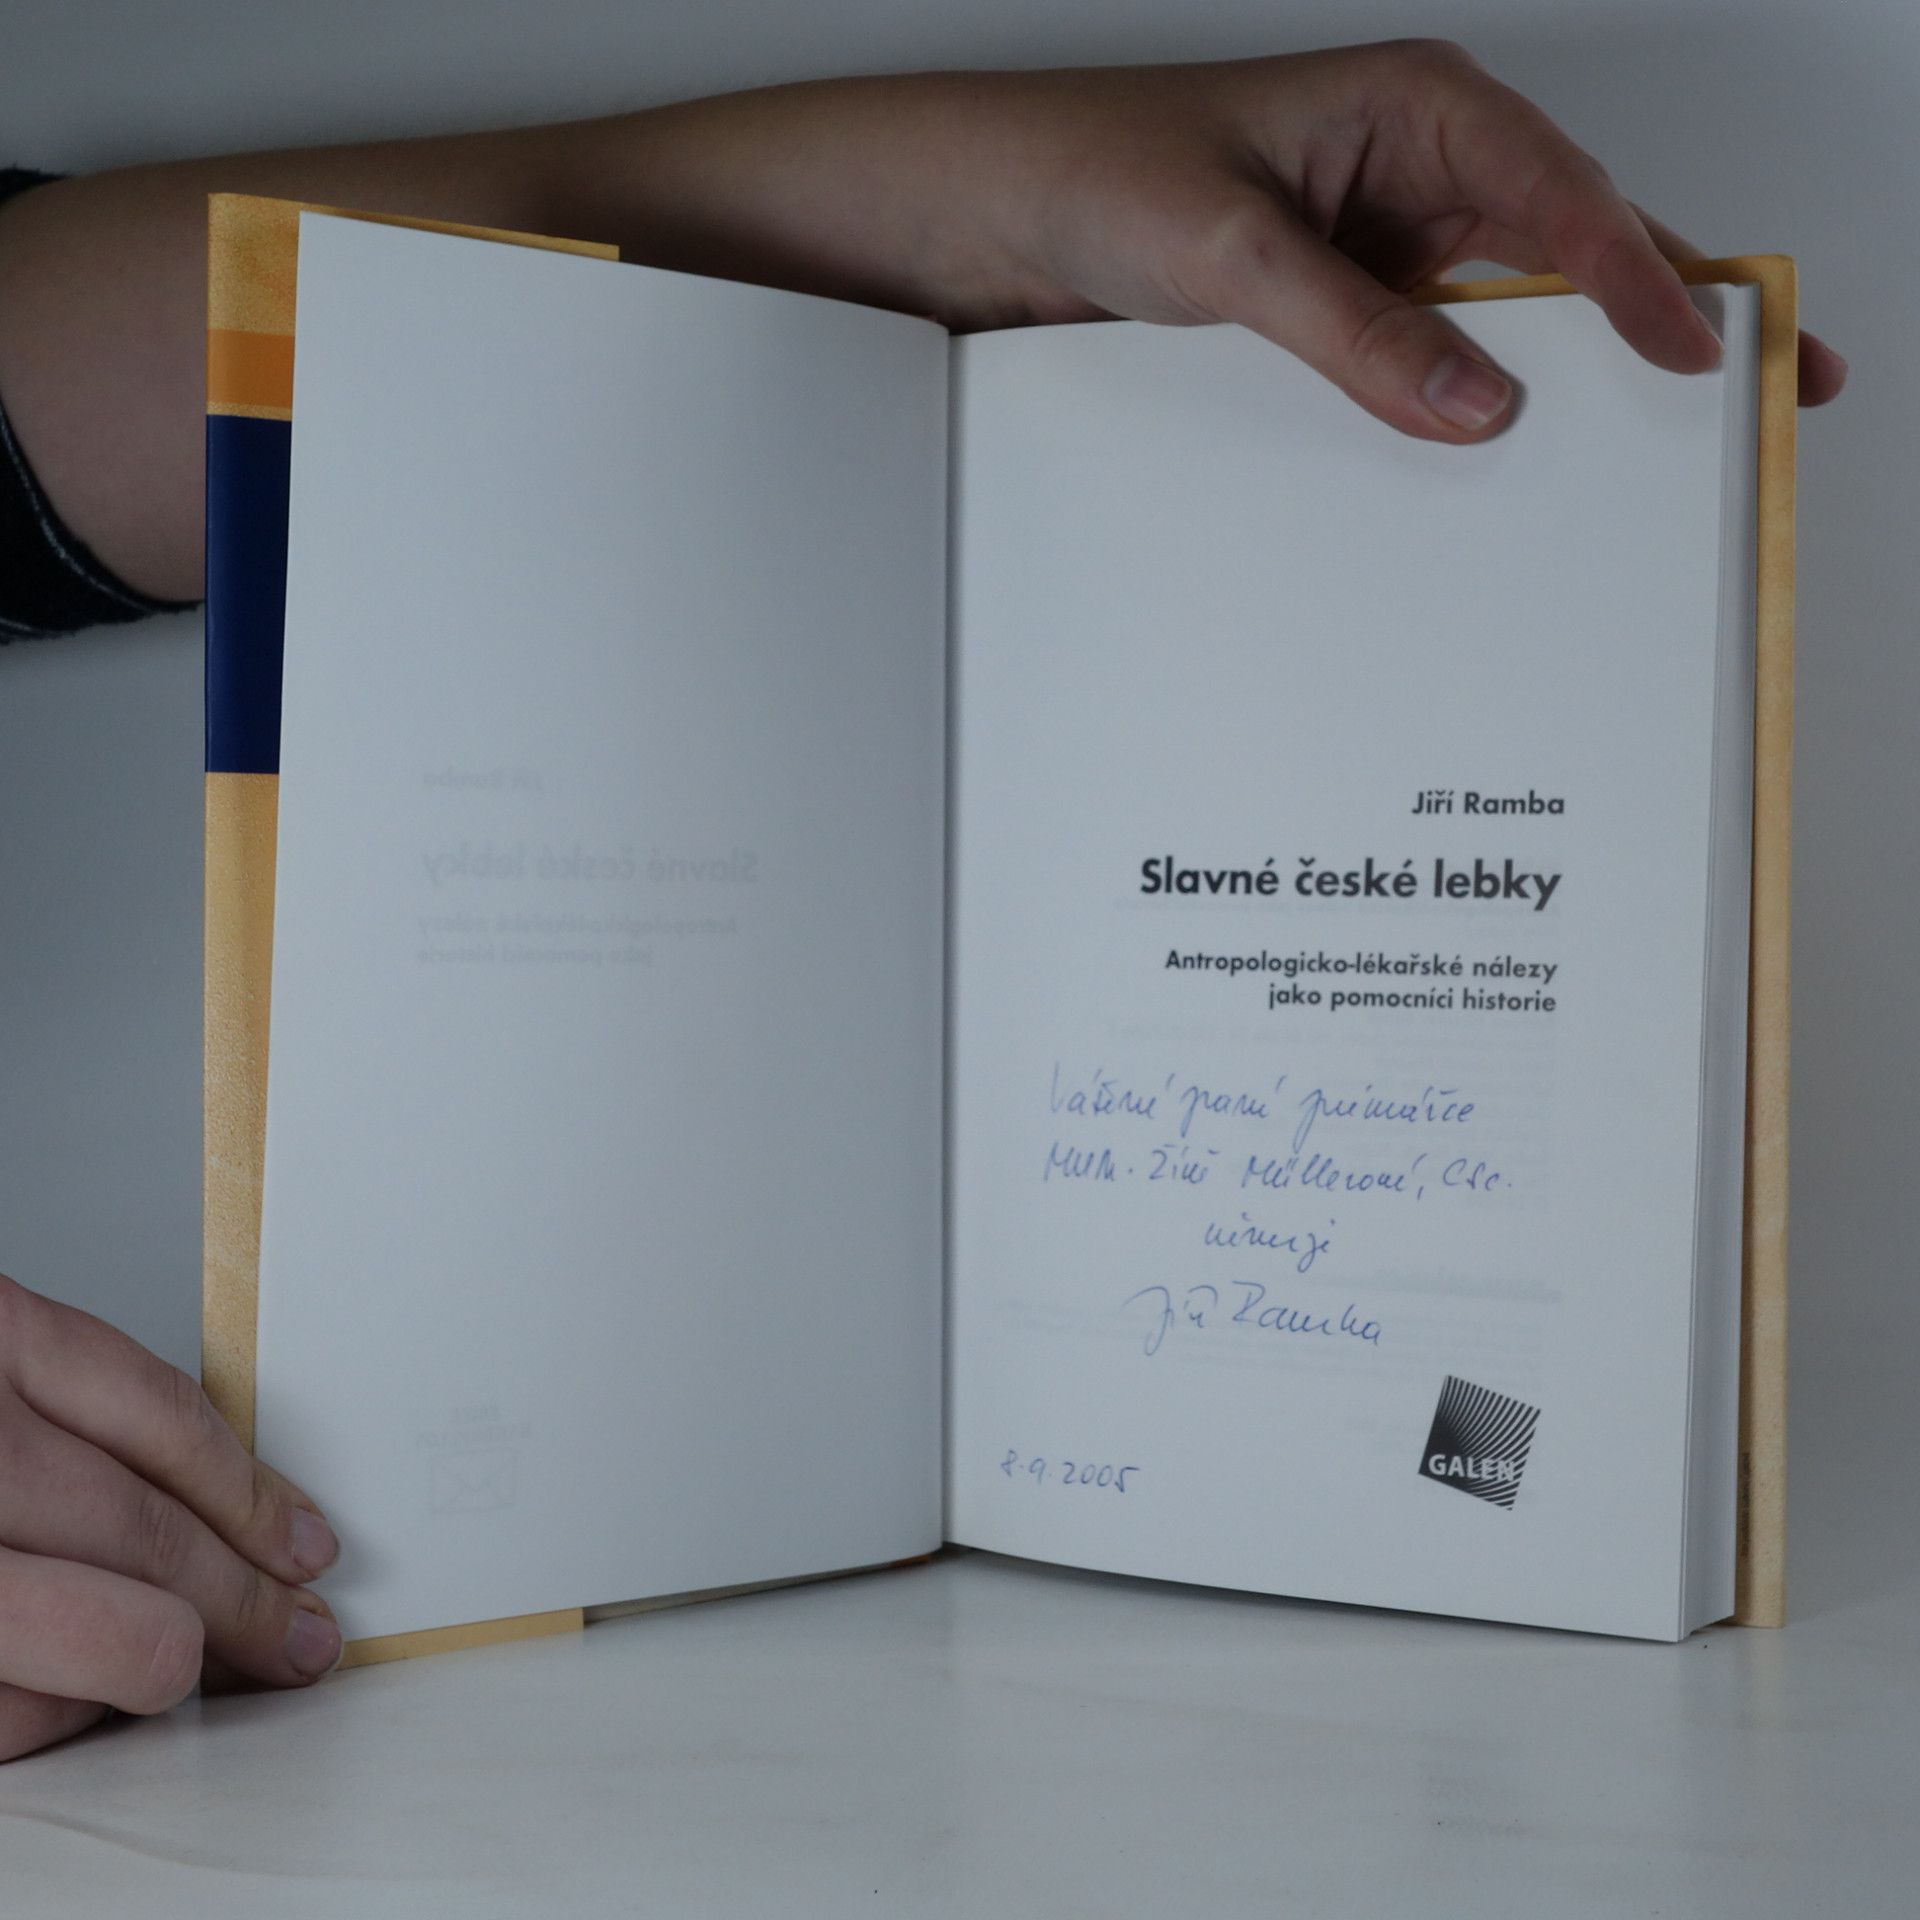 Jiří Ramba
Slavné české lebky
Antropologicko-lékařské nálezy
jako pomocníci historie
Vážené paní primářce
MUDr. Zině Müllerové, CSc.
věnuje
Jiří Ramba
8.9.2005
GALÉN